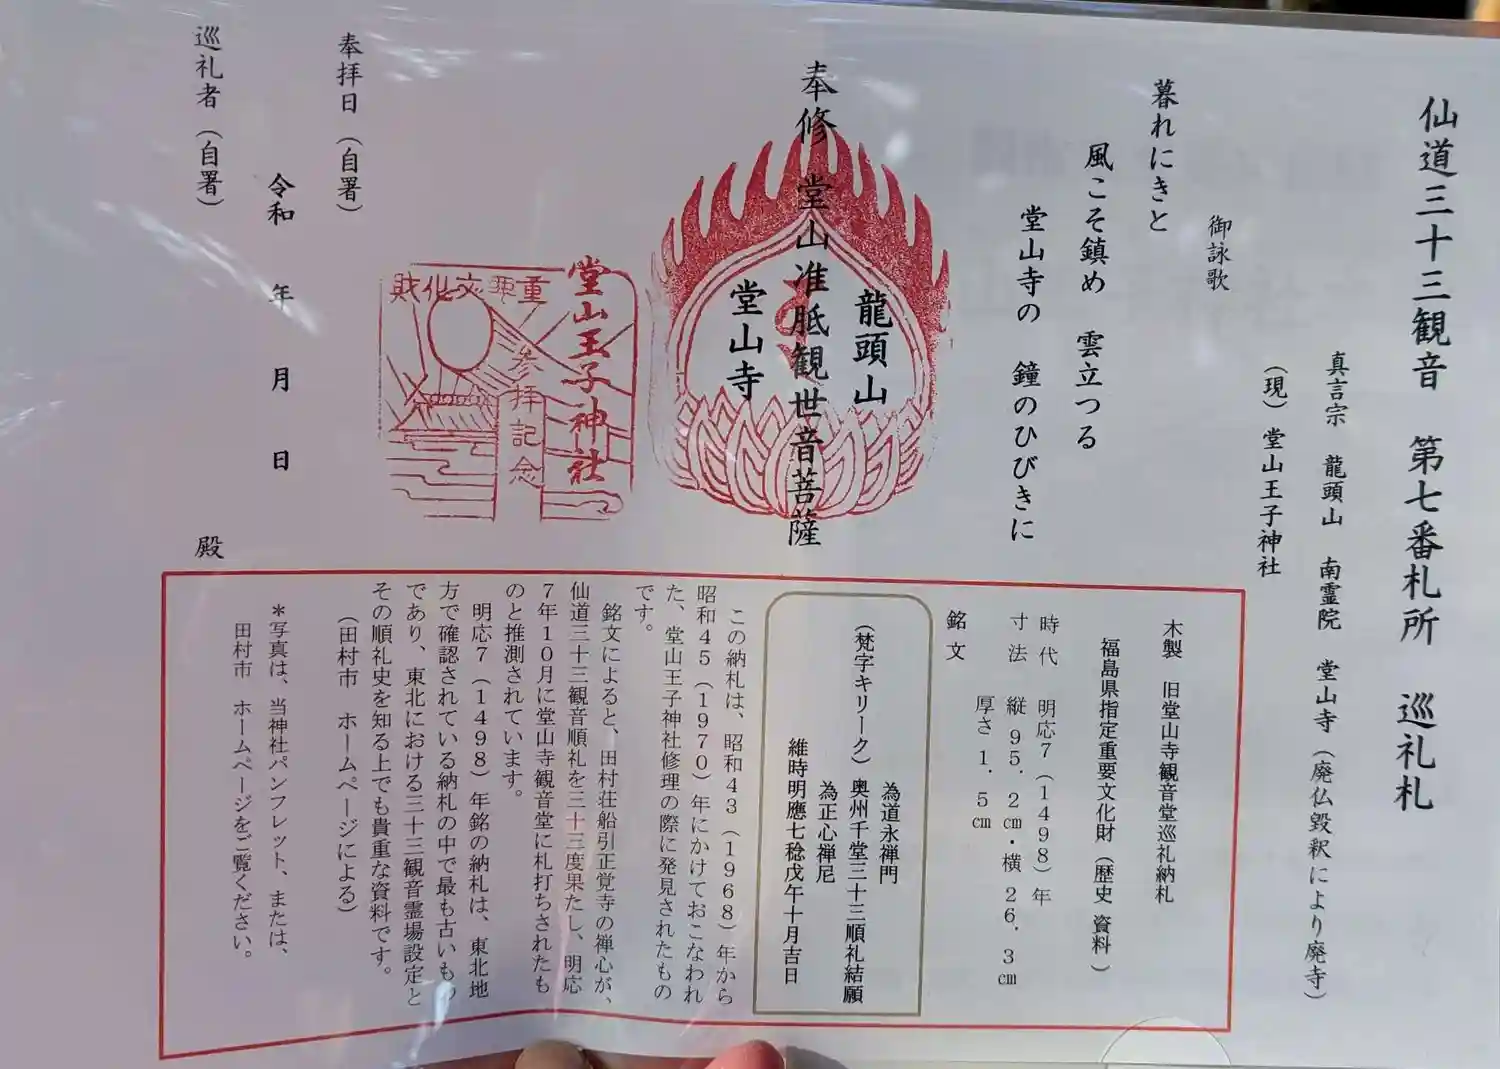 仙道三十三観音　第七番札所　巡礼札
真言宗　龍頭山　南霊院　堂山寺（廃仏毀釈により廃寺）
（現）堂山王子神社
御詠歌
暮れにきと
風こそ鎮め　雲立つる
堂山寺の　鐘のひびきに
龍頭山
奉修　堂山准胝観世音菩薩
堂山寺
堂山王子神社
重要文化財
参拝記念
奉拝日（自署）
令和　年　月　日
巡礼者（自署）
殿
木製　旧堂山寺観音堂巡礼納札
福島県指定重要文化財（歴史 資料）
時代　明応７（１４９８）年
寸法　縦 ９５．２㎝・横 ２６．３㎝
厚さ １．５㎝
銘文
為道永禅門
（梵字キリーク）奥州千堂三十三順礼結願
為正心禅尼
維時明應七稔戊午十月吉日
この納札は、昭和４３（１９６８）年から
昭和４５（１９７０）年にかけておこなわれ
た、堂山王子神社修理の際に発見されたもの
です。
銘文によると、田村荘船引正覚寺の禅心が、
仙道三十三観音順礼を三十三度果たし、明応
７年１０月に堂山寺観音堂に札打ちされたも
のと推測されています。
明応７（１４９８）年銘の納札は、東北地
方で確認されている納札の中で最も古いもの
であり、東北における三十三観音霊場設定と
その順礼史を知る上でも貴重な資料です。
（田村市　ホームページによる）
＊写真は、当神社パンフレット、または、
田村市　ホームページをご覧ください。